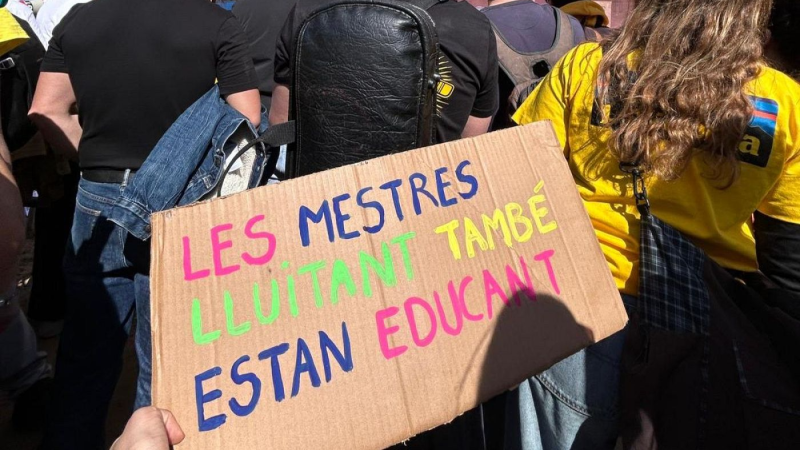 LES MESTRES
LLUITANT TAMBÉ
ESTAN EDUCANT